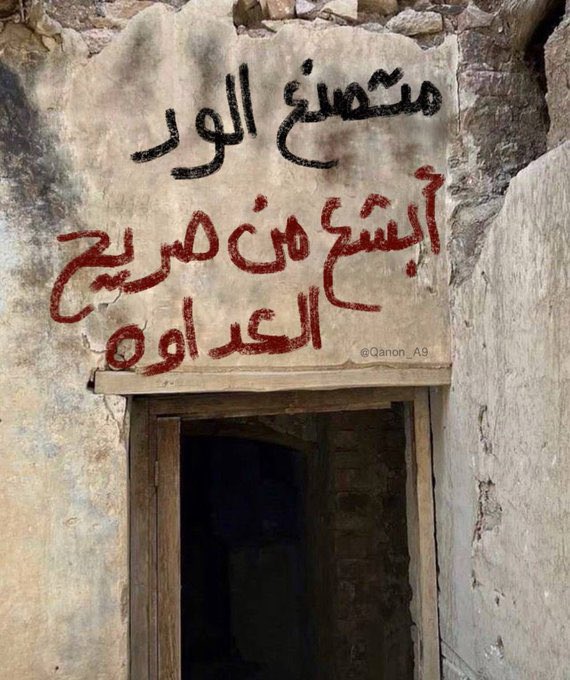 متصنع الود
أبشع من صريح
العداوه
@Qanon_A9